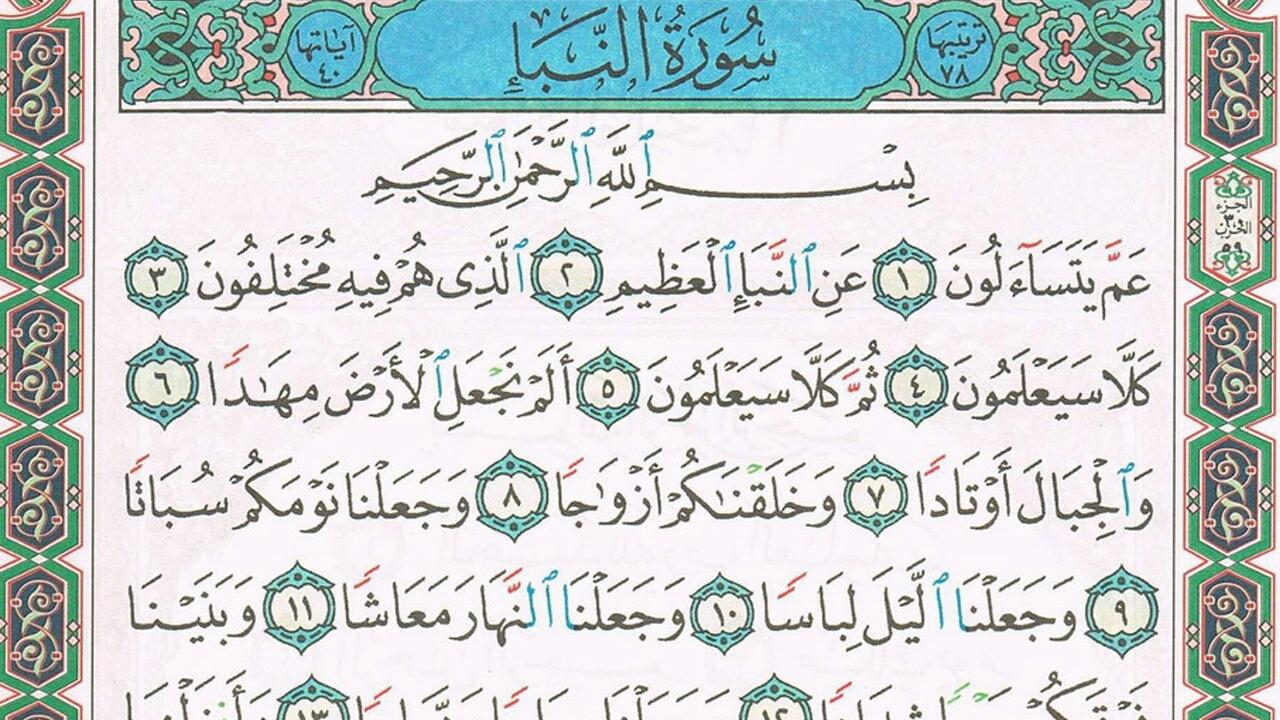 ترتيبها ٧٨
سُورَةُ النَّبَإِ
آياتها ٤٠
بِسْمِ ٱللَّهِ ٱلرَّحْمَٰنِ ٱلرَّحِيمِ
عَمَّ يَتَسَآءَلُونَ ١ عَنِ ٱلنَّبَإِ ٱلْعَظِيمِ ٢ ٱلَّذِى هُمْ فِيهِ مُخْتَلِفُونَ ٣
كَلَّا سَيَعْلَمُونَ ٤ ثُمَّ كَلَّا سَيَعْلَمُونَ ٥ أَلَمْ نَجْعَلِ ٱلْأَرْضَ مِهَٰدًا ٦
وَٱلْجِبَالَ أَوْتَادًا ٧ وَخَلَقْنَٰكُمْ أَزْوَٰجًا ٨ وَجَعَلْنَا نَوْمَكُمْ سُبَاتًا
٩ وَجَعَلْنَا ٱلَّيْلَ لِبَاسًا ١٠ وَجَعَلْنَا ٱلنَّهَارَ مَعَاشًا ١١ وَبَنَيْنَا
الجزء ٣٠
الحزب ٥٩